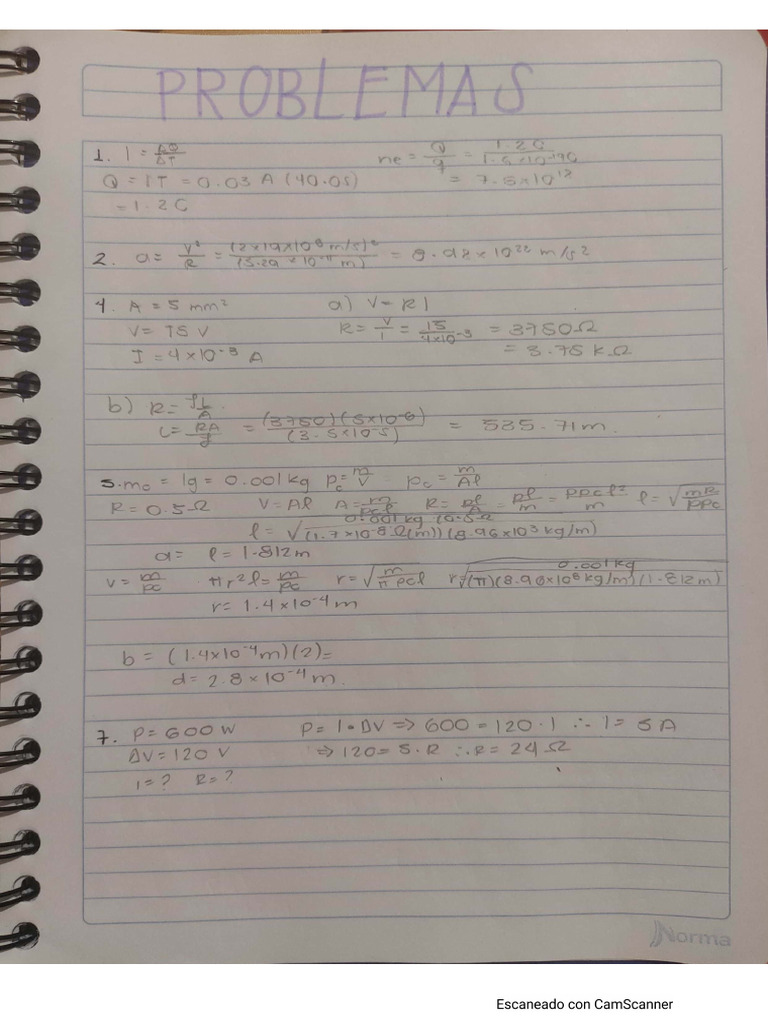 PROBLEMAS
1. I = ΔQ/ΔT    ne = Q/q = 1.2C/1.6x10^-19C
Q = IT = 0.03 A (40.0s)    = 7.5x10^18
= 1.2 C
2. a = V²/R = (2x19x10^6 m/s)²/(5.29 x 10^-11 m) = 9.02 x 10^22 m/s²
4. A = 5 mm²    a) V = RI
V = 15 V    R = V/I = 15/4x10^-3 = 3750Ω
I = 4x10^-3 A    = 3.75 KΩ
b) R = ρL/A
L = RA/ρ = (3750)(5x10^-6)/(3.5x10^-5) = 535.71 m.
5. mc = 1g = 0.001kg    ρc = m/V    ρc = m/Aℓ
R = 0.5Ω    V = Aℓ    A = m/ρcℓ    R = ρℓ/A = ρℓ/m = ρρcℓ²/m    ℓ = √mR/ρρc
ℓ = √0.001 kg (0.5Ω/(1.7x10^-8 Ω(m))(8.96x10^3 kg/m)
a = ℓ = 1.812m
v = m/ρc    πr²ℓ = m/ρc    r = √m/πρcℓ    r√0.001kg/(π)(8.96x10^8 kg/m)(1.812m)
r = 1.4x10^-4 m
b = (1.4x10^-4 m)(2) =
d = 2.8x10^-4 m.
7. P = 600 W    P = I·ΔV ⇒ 600 = 120·I ∴ I = 5 A
ΔV = 120 V    ⇒ 120 = 5·R ∴ R = 24 Ω
I = ?  R = ?
Norma
Escaneado con CamScanner